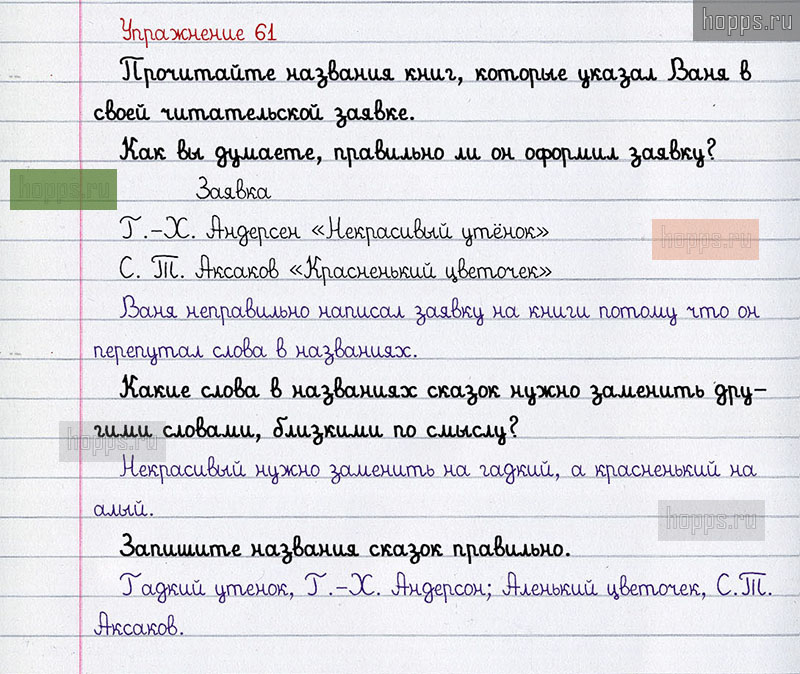 hopps.ru
Упражнение 61
Прочитайте названия книг, которые указал Ваня в
своей читательской заявке.
Как вы думаете, правильно ли он оформил заявку?
hopps.ru
Заявка
Г.-Х. Андерсен «Некрасивый утёнок»
hopps.ru
С. Т. Аксаков «Красненький цветочек»
Ваня неправильно написал заявку на книги потому что он
перепутал слова в названиях.
Какие слова в названиях сказок нужно заменить дру-
гими словами, близкими по смыслу?
hopps.ru
Некрасивый нужно заменить на гадкий, а красненький на
алый.
hopps.ru
Запишите названия сказок правильно.
Гадкий утенок, Г.-Х. Андерсон; Аленький цветочек, С.Т.
Аксаков.